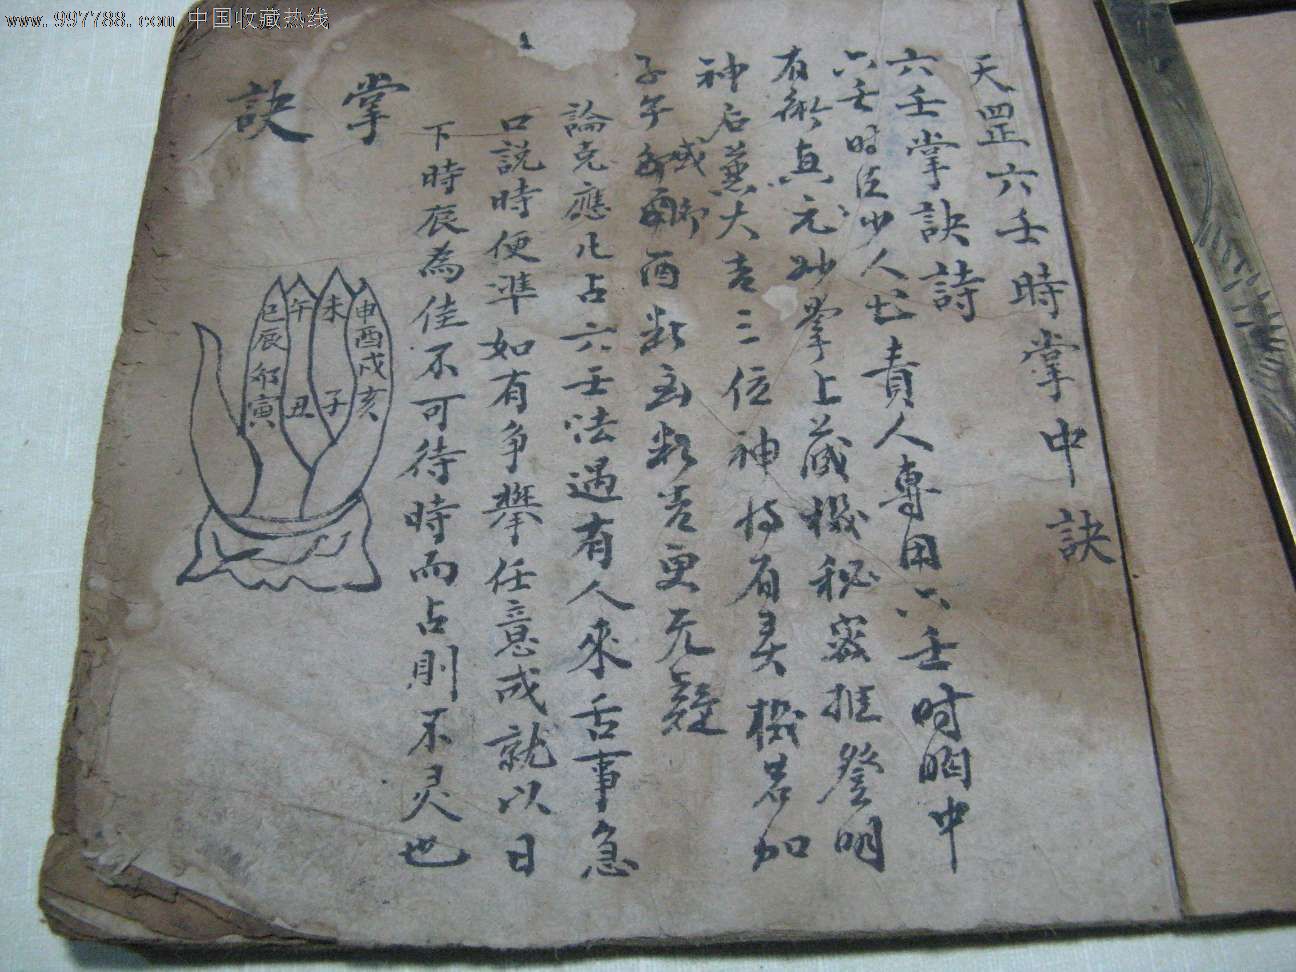 www.997788.com 中国收藏热线
天罡六壬時掌中訣
六壬掌訣詩
六壬时法少人 責人專用六壬时 中
有 真元妙掌上藏機秘密推登明
神后兼大吉三位神 有灵機若加
子午 卯酉 更无疑
論克應凡占六壬法遇有人來舌事急
口説時便準如有争舉任意成就以日
下時辰為佳不可待時而占則不灵也
掌訣
申酉戌亥
未子
午丑
巳辰卯寅